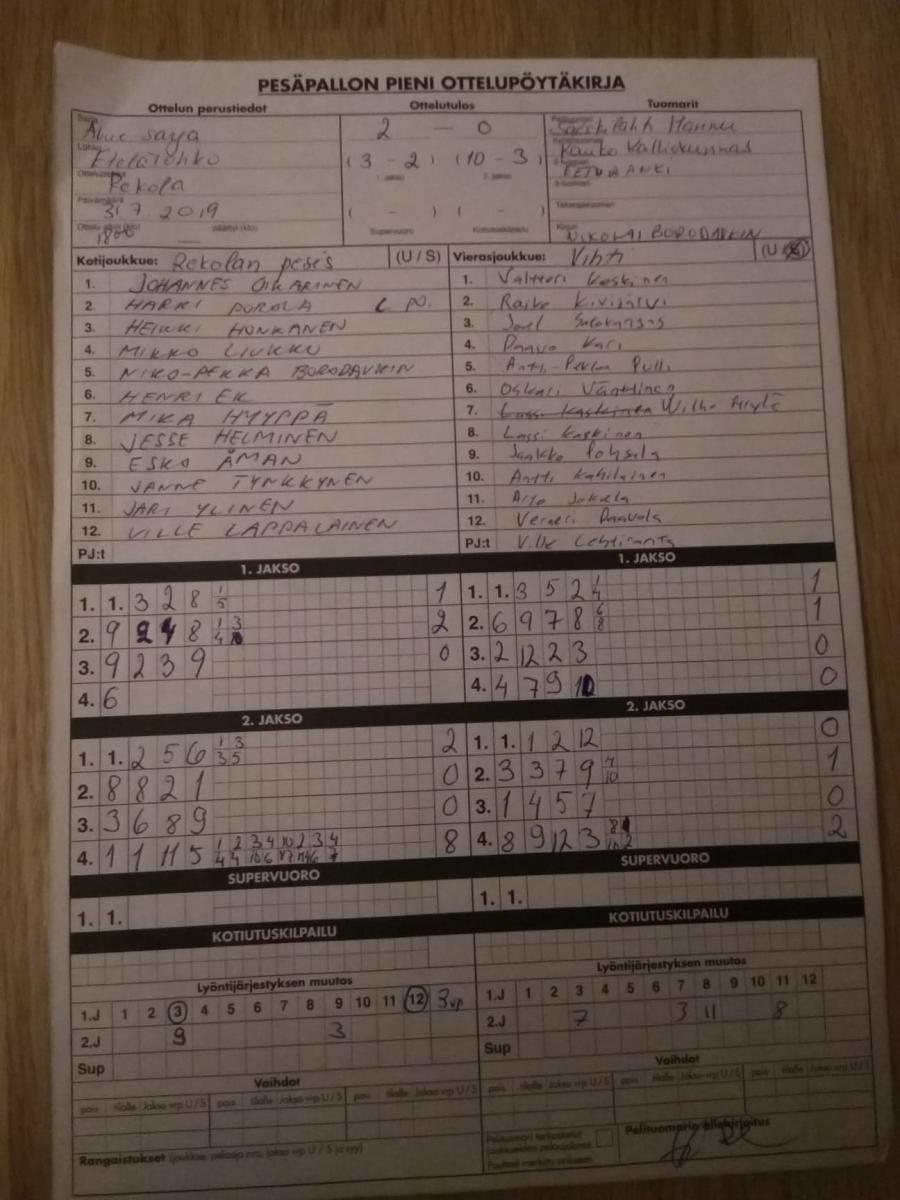 PESÄPALLON PIENI OTTELUPÖYTÄKIRJA
Ottelun perustiedot Ottelutulos Tuomarit
Alue sarja 2 — 0 Hannu
( 3 - 2 ) (10 - 3) Kauko Kalliokunnas
Rekola 1. jakso 2. jakso
Päivämäärä
31.7.2019 ( - ) ( - )
1800 päättyi (klo) Supervuoro Kotiutuskilpailu NIKOLAI BORODAVKIN
Kotijoukkue: Rekolan pesis (U / S) Vierasjoukkue: Vihti (U / S)
1. JOHANNES OIKARINEN 1. Valtteri Koskinen
2. HARRI POROLA L PO. 2. Raiko Kivijärvi
3. HEIKKI HONKANEN 3. Joel
4. MIKKO LIUKKU 4. Paavo Kari
5. NIKO-PEKKA BORODAVKIN 5. Antti-Pekka Pulli
6. HENRI EK 6. Oskari Vänttinen
7. MIKA HYYPPÄ 7. Lassi Koskinen Wilho
8. JESSE HELMINEN 8. Lassi Koskinen
9. ESKO ÅMAN 9. Jaakko Pohjola
10. JANNE TYNKKYNEN 10. Antti Kahilainen
11. JARI YLINEN 11. Arto Jokela
12. VILLE LAPPALAINEN 12. Verneri Paavola
PJ:t PJ:t Ville Lehtiranta
1. JAKSO 1. JAKSO
1. 1. 3 2 8 1/5 1 1. 1. 3 5 2 1/4 1
2. 9 2 4 8 1/4 3/10 2 2. 6 9 7 8 6/8 1
3. 9 2 3 9 0 3. 2 12 2 3 0
4. 6 4. 4 7 9 10 0
2. JAKSO 2. JAKSO
1. 1. 2 5 6 1/3 3/5 2 1. 1. 1 2 12 0
2. 8 8 2 1 0 2. 3 3 7 9 4/10 1
3. 3 6 8 9 0 3. 1 4 5 7 0
4. 1 1 11 5 8 4. 8 9 12 3 2
SUPERVUORO SUPERVUORO
1. 1. 1. 1.
KOTIUTUSKILPAILU KOTIUTUSKILPAILU
Lyöntijärjestyksen muutos Lyöntijärjestyksen muutos
1.J 1 2 3 4 5 6 7 8 9 10 11 12 3vp 1.J 1 2 3 4 5 6 7 8 9 10 11 12
2.J 9 3 2.J 7 3 11 8
Sup Sup
Vaihdot Vaihdot
pois tilalle Jakso vrp U / S pois tilalle Jakso vrp U / S pois tilalle Jakso vrp U / S pois tilalle Jakso vrp U / S pois tilalle Jakso vrp U / S pois tilalle Jakso vrp U / S
Pelituomari tarkastanut Pelituomarin allekirjoitus
Rangaistukset (joukkue, pelaaja nro, jakso vrp U / S ja syy)